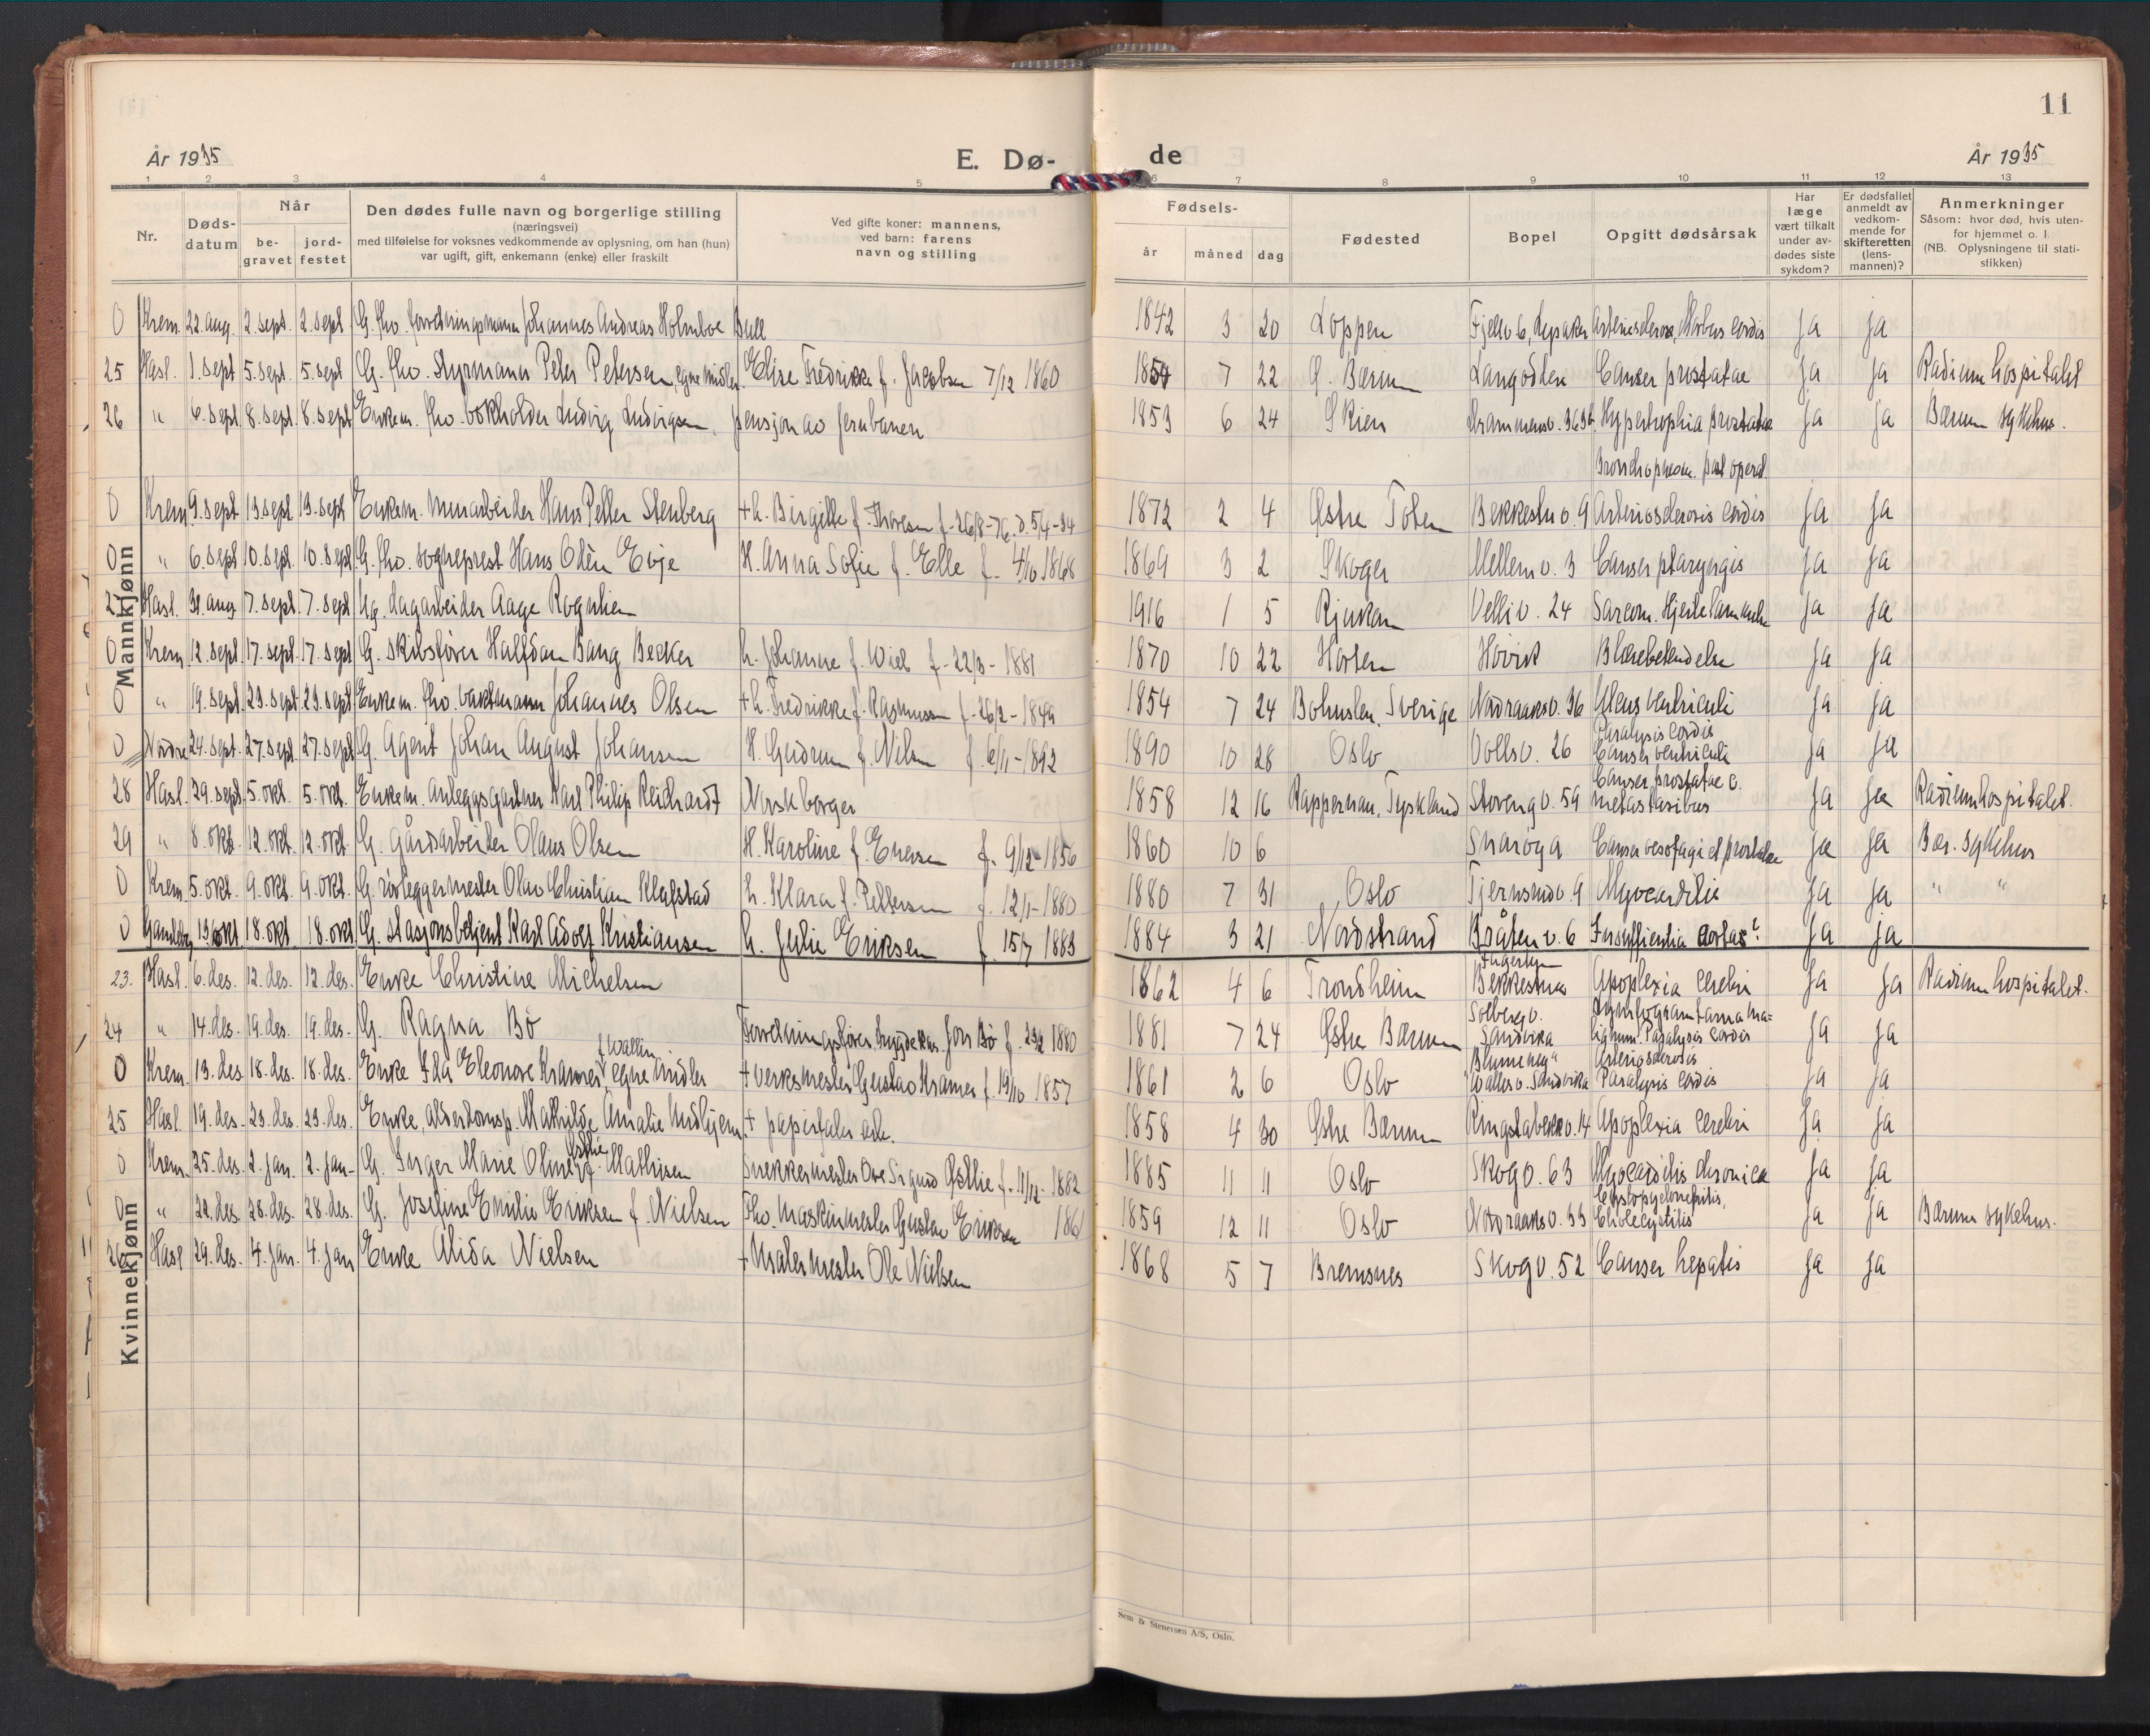 11
År 1935
E. Dø-
de
År 1935
1 2 3 4 5 6 7 8 9 10 11 12 13
Nr.
Døds-
datum
Når
be-
gravet
jord-
festet
Den dødes fulle navn og borgerlige stilling
(næringsvei)
med tilføielse for voksnes vedkommende av oplysning, om han (hun)
var ugift, gift, enkemann (enke) eller fraskilt
Ved gifte koner: mannens,
ved barn: farens
navn og stilling
Fødsels-
år måned dag
Fødested
Bopel
Opgitt dødsårsak
Har
læge
vært tilkalt
under av-
dødes siste
sykdom?
Er dødsfallet
anmeldt av
vedkom-
mende for
skifteretten
(lens-
mannen)?
Anmerkninger
Såsom: hvor død, hvis uten-
for hjemmet o. l.
(NB. Oplysningene til stati-
stikken)
Mannkjønn
0 Krem. 22. aug. 2. sept. 2. sept. G. fhv. forretningsmann Johannes Andreas Holmboe Bull 1842 3 20 Loppen Fjellv. 6, Lysaker Arteriosclerose, Morbus cordis Ja Ja
25 Hasl. 1. sept 5. sept. 5. sept G. fhv. Styrmann Peter Petersen, egne midler. Elise Fredrikke f. Jacobsen 7/12 1860 1854 7 22 Ø. Bærum Langodden Canser prostatae Ja Ja Radiumhospitalet
26 " 6. sept. 8. sept. 8. sept Enkem. fhv. bokholder Ludvig Ludvigsen, pensjon av jernbanen 1853 6 24 Skien Drammensv. Hypertrophia prostatae Ja Ja Bærum sykehus.
Bronchopneum. post operat.
0 Krem. 9. sept 13. sept. 13. sept Enkem. Murarbeider Hans Petter Stenberg + h. Birgitte f. Thoresen f. 26/8-76. d. 5/4-34 1872 2 4 Østre Toten Bekkestuv. 9 Arteriosclerosis cordis Ja Ja
0 " 6. sept 10. sept. 10. sept G. fhv. sogneprest Hans Olein Evje H. Anna Sofie f. Elle f. 4/10 1868 1869 3 2 Skoger Mellemv. 3 Canser pharyngis Ja Ja
27 Hasl. 31. aug 7. sept. 7. sept Ug. Lagarbeider Aage Rognlien 1916 1 5 Rjukan Velliv. 24 Sarcom. Ja Ja
0 Krem 12. sept. 17. sept. 17. sept G. skibsfører Halfdan Bang Becker h. Johanne f. Wiel f. 22/3 - 1881 1870 10 22 Horten Høvik Blærebetendelse Ja Ja
0 " 19. sept. 23. sept. 23. sept Enkem. fhv. vaktmann Johannes Olsen + h. Fredrikke f. Rasmussen f. 26/2 - 1849 1854 7 24 Bohuslen, Sverige Nordraaksv. 36 Ulcus ventriculi Ja Ja
0 Nordre 24. sept. 27. sept. 27. sept G. Agent Johan August Johansen H. Gudrun f. Nilsen f. 6/11 - 1892 1890 10 28 Oslo Vollsv. 26 Paralysis cordis
Canser ventriculi Ja Ja
28 Hasl. 29. sept. 5. okt. 5. okt. Enkem. Anleggsgartner Karl Philip Reichardt Norsk borger 1858 12 16 Rappernau, Tyskland Storengv. 59 Canser prostatae c.
metastasibus Ja Ja Radiumhospitalet.
29 " 8. okt. 12. okt. 12. okt. G. Gårdsarbeider Olaus Olsen H. Karoline f. Enersen f. 9/12 - 1856 1860 10 6 Snarøya Canser oesofagi et prostatae Ja Ja Bær. sykehus
0 Krem 5. okt. 9. okt. 9. okt. G. rørleggermester Olav Christian Klafstad h. Klara f. Pettersen f. 12/1 - 1880 1880 7 31 Oslo Tjernsmdv. 9 Myocarditis Ja Ja " "
0 Gamleby 13/okt 18. okt. 18. okt G. Stasjonsbetjent Karl Adolf Kristiansen h. Julie Eriksen f. 15/7 1883 1884 3 21 Nordstrand Bråtenv. 6 Insuffientia aortae? Ja Ja
Kvinnekjønn
23. Hasl. 6. des. 12. des. 12. des. Enke Christine Michelsen 1862 4 6 Trondheim Bekkestua Apoplexia cerebri Ja Ja Radiumhospitalet.
24 " 14. des. 19. des. 19. des. G. Ragna Bø Forretningsfører, Jon Bø f. 23/2 1880 1881 7 24 Østre Bærum Solbergv.
Sandvika Lymfogranuloma ma-
lignum. Paralysis cordis Ja Ja
0 Krem. 13. des. 18. des. 18. des. Enke Ida Eleonore Kramer f. Wallin, egne midler + verksmester Gustav Kramer f. 19/10 1857 1861 2 6 Oslo "Blommeheg"
Wallesv. Sandvika Arteriosclerosis
Paralysis cordis Ja Ja
25 Hasl. 19. des. 23. des. 23. des. Enke, alderdomsp. Mathilde Amalie Midhjem. + papirfaler 1858 4 30 Østre Bærum Ringstabekkv. 14 Apoplexia cerebri Ja Ja
0 Krem. 25. des. 2. jan. 2. jan. G. Inger Marie Oline Østlie f. Mathisen Snekkermester Ove Sigurd Østlie f. 11/12 - 1882 1885 11 11 Oslo Skogv. 63 Myocarditis chronica Ja Ja
0 " 22. des. 28. des. 28. des. G. Josefine Emilie Eriksen f. Nielsen Fhv. Maskinmester Gustav Eriksen 1861 1859 12 11 Oslo Nordraaksv. 33 Cystopyelonefritis,
Cholecystitis Ja Ja Bærum sykehus.
26 Hasl 29. des. 4. jan. 4. jan Enke Alida Nielsen + Malermester Ole Nielsen 1868 5 7 Bremsnes Skogv. 52 Canser hepatis Ja Ja
Sem & Stenersen A/S, Oslo.